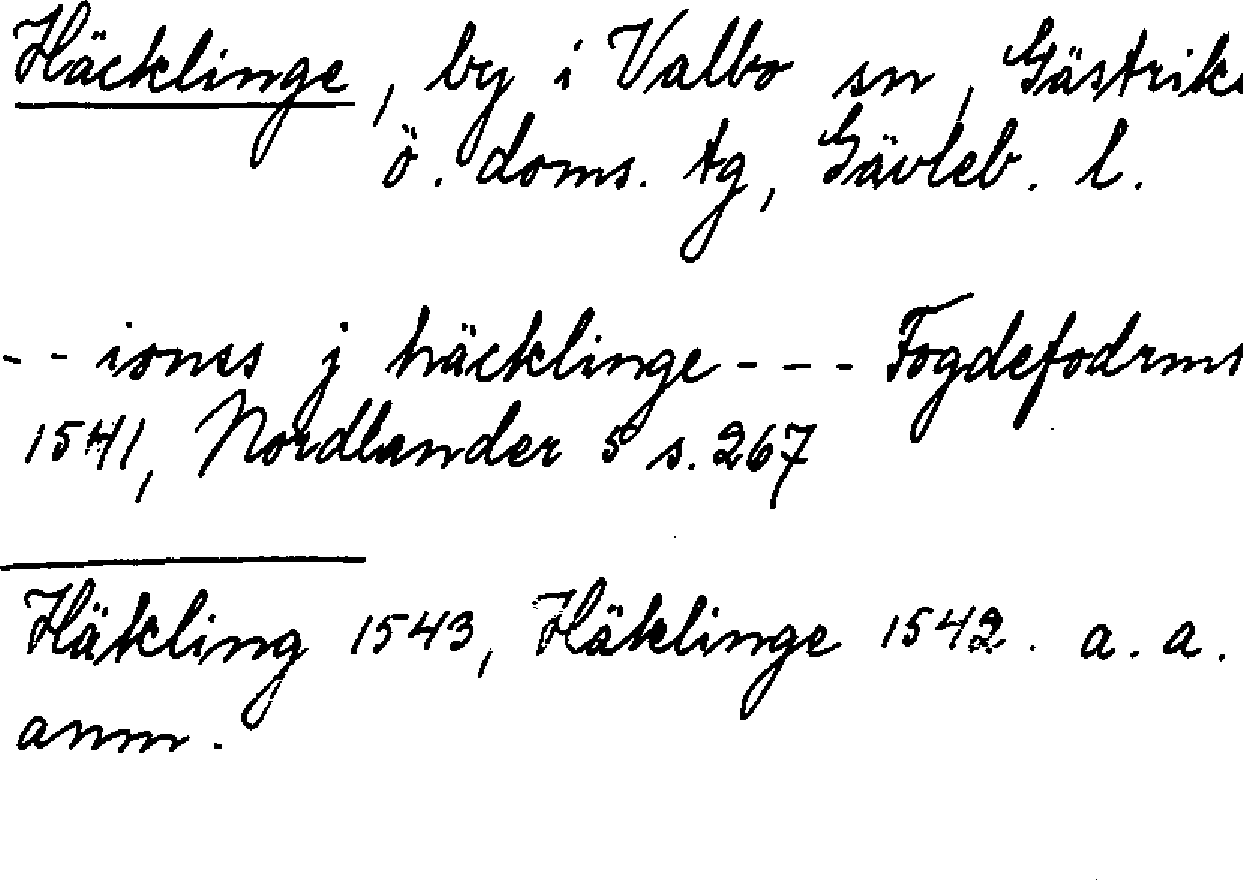 Häcklinge, by i Valbo sn, Gästrik
ö. doms. tg, Gävleb. l.
-- ionss j häcklinge --- Fogdefodrms
1541, Nordlander 5 s. 267
Häkling 1543, Häklinge 1542. a. a.
anm.